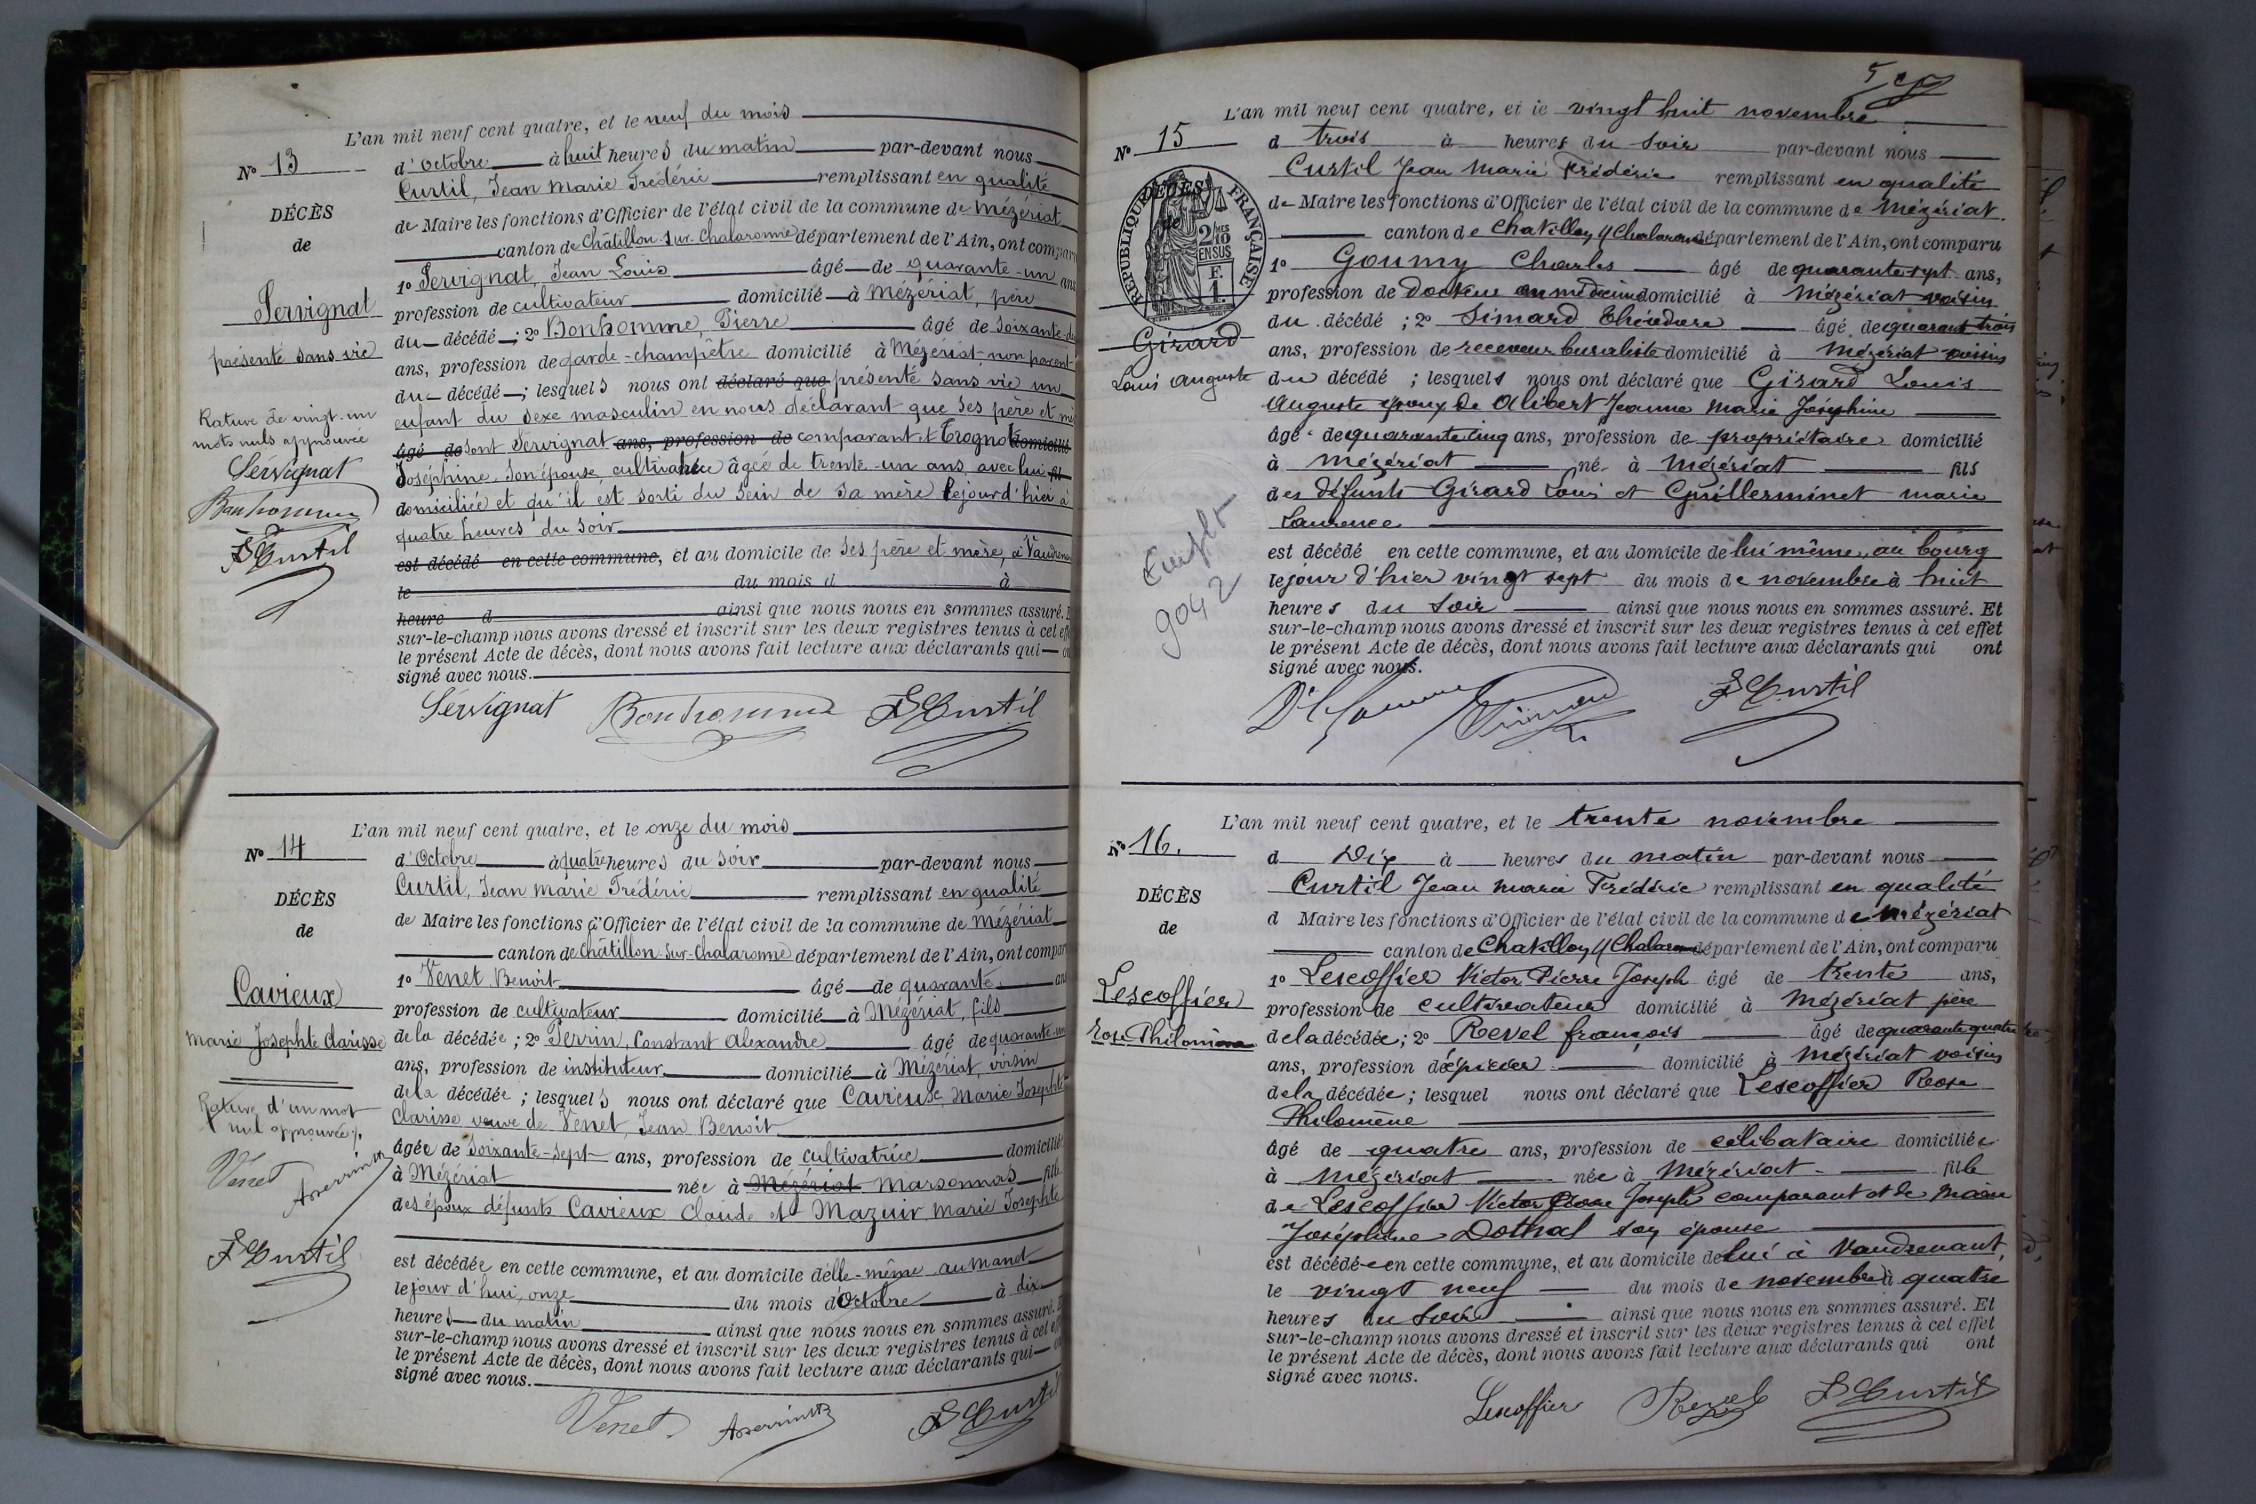 L'an mil neuf cent quatre, et le neuf du mois
N° 13
d'Octobre à huit heures du matin par-devant nous
Curtil, Jean Marie Frédéric remplissant en qualité
DÉCÈS
de Maire les fonctions d'Officier de l'état civil de la commune de Mézériat
de
canton de Châtillon-sur-Chalaronne département de l'Ain, ont comparu
1° Servignat, Jean Louis âgé de quarante-un ans
Servignat
profession de cultivateur domicilié à Mézériat, père
présenté sans vie
du décédé ; 2° Bonhomme, Pierre âgé de soixante
ans, profession de garde-champêtre domicilié à Mézériat non parent
du décédé ; lesquels nous ont déclaré que présenté sans vie un
Rature de vingt-un
mots nuls approuvée
enfant du sexe masculin en nous déclarant que ses père et
âgé de sont Servignat ans, profession de comparant et domicilié
Servignat
Joséphine, son épouse, cultivatrice âgée de trente-un ans, avec lui
Bonhomme
domiciliée et qu'il est sorti du sein de sa mère le jour d'hier à
quatre heures du soir
F Curtil
est décédé en cette commune, et au domicile de ses père et mère, à
le du mois d à
heure d ainsi que nous nous en sommes assuré.
sur-le-champ nous avons dressé et inscrit sur les deux registres tenus à cet
le présent Acte de décès, dont nous avons fait lecture aux déclarants qui
signé avec nous.
Servignat Bonhomme F Curtil
L'an mil neuf cent quatre, et le onze du mois
N° 14
d'Octobre à quatre heures du soir par-devant nous
Curtil, Jean Marie Frédéric remplissant en qualité
DÉCÈS
de Maire les fonctions d'Officier de l'état civil de la commune de Mézériat
de
canton de Châtillon-sur-Chalaronne département de l'Ain, ont
1° Venet Benoit âgé de quarante
Cavieux
profession de cultivateur domicilié à Mézériat, fils
Marie Josephte Clarisse
de la décédée ; 2° Perrin, Constant Alexandre âgé de quarante-un
ans, profession de instituteur domicilié à Mézériat, voisin
de la décédée ; lesquels nous ont déclaré que Cavieux, Marie Josephte
Rature d'un mot
nul approuvée
Clarisse veuve de Venet, Jean Benoit
âgée de soixante-sept ans, profession de cultivatrice domiciliée
Venet
à Mézériat née à Mézériat Marsonnas fille
des époux défunts Cavieux Claude et Mazuir Marie Josephte
F Curtil
est décédée en cette commune, et au domicile d'elle-même au Manot
le jour d'hui, onze du mois d'Octobre à dix
heures du matin ainsi que nous nous en sommes assuré.
sur-le-champ nous avons dressé et inscrit sur les deux registres tenus à cet
le présent Acte de décès, dont nous avons fait lecture aux déclarants qui
signé avec nous.
Venet F Curtil
L'an mil neuf cent quatre, et le vingt huit novembre
N° 15
d trois à heures du soir par-devant nous
Curtil Jean Marie Frédéric remplissant en qualité
RÉPUBLIQUE FRANÇAISE
DÉCÈS
de
2/10 MES EN SUS
F. 1.
de Maire les fonctions d'Officier de l'état civil de la commune de Mézériat
canton de Chatillon s/ Chalaronne département de l'Ain, ont comparu
1° Goumy Charles âgé de quarante sept ans,
profession de docteur en médecine domicilié à Mézériat voisin
du décédé ; 2° Simard Théodore âgé de quarante trois
Girard
ans, profession de receveur buraliste domicilié à Mézériat voisin
Louis Auguste
du décédé ; lesquels nous ont déclaré que Girard Louis
Auguste époux de Alibert Jeanne Marie Joséphine
âgé de quarante cinq ans, profession de propriétaire domicilié
à Mézériat né à Mézériat fils
des défunts Girard Louis et Guillerminet Marie
Laurence
9042
est décédé en cette commune, et au domicile de lui même, au bourg
le jour d'hier vingt sept du mois de novembre à huit
heures du soir ainsi que nous nous en sommes assuré. Et
sur-le-champ nous avons dressé et inscrit sur les deux registres tenus à cet effet
le présent Acte de décès, dont nous avons fait lecture aux déclarants qui ont
signé avec nous.
F Curtil
L'an mil neuf cent quatre, et le trente novembre
N° 16.
d Dix à heures du matin par-devant nous
Curtil Jean Marie Frédéric remplissant en qualité
DÉCÈS
d Maire les fonctions d'Officier de l'état civil de la commune de Mézériat
de
canton de Chatillon s/ Chalaronne département de l'Ain, ont comparu
1° Lescoffier Victor Pierre Joseph âgé de trente ans,
Lescoffier
profession de cultivateur domicilié à Mézériat père
Rose Philomène
de la décédée ; 2° Revel françois âgé de quarante quatre
ans, profession d'épicier domicilié à Mézériat voisin
de la décédée ; lesquel nous ont déclaré que Lescoffier Rose
Philomène
âgé de quatre ans, profession de célibataire domiciliée
à Mézériat née à Mézériat fille
de Lescoffier Victor Pierre Joseph comparant et de Marie
Joséphine son épouse
est décédée en cette commune, et au domicile de lui à Vaudrenant,
le vingt neuf du mois de novembre à quatre
heures du soir ainsi que nous nous en sommes assuré. Et
sur-le-champ nous avons dressé et inscrit sur les deux registres tenus à cet effet
le présent Acte de décès, dont nous avons fait lecture aux déclarants qui ont
signé avec nous.
Lescoffier Revel F Curtil